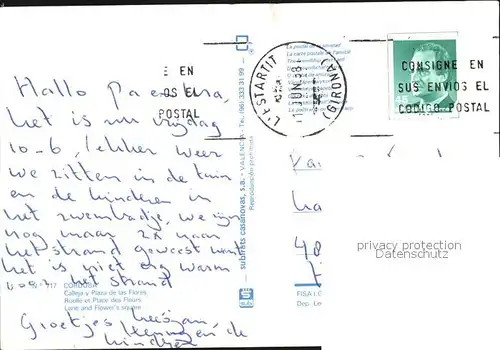 Hallo Pa en Ma,
het is nu vrijdag
10-6, lekker weer
we zitten in de tuin
en de kinderen in
het zwembadje, we zijn
nog maar 2x naar
het strand geweest want
het is niet erg warm
voor het strand
Groetjes
Henny en de
kinderen
N.º 717 CORDOBA
Calleja y Plaza de las Flores
Ruelle et Place des Fleurs
Lane and Flower's square
subirats casanovas, s.a. - VALENCIA - Tel. (96) 333 31 99
Reproducción prohibida
La postal de la amistad
La carte postale de l'amitié
E EN
OS EL
POSTAL
L'ESTARTIT
(GIRONA)
JUN. 88
CONSIGNE EN
SUS ENVIOS EL
CODIGO POSTAL
45
Ka
La
48
privacy protection
Datenschutz
FISA I.G.
Dep. Le